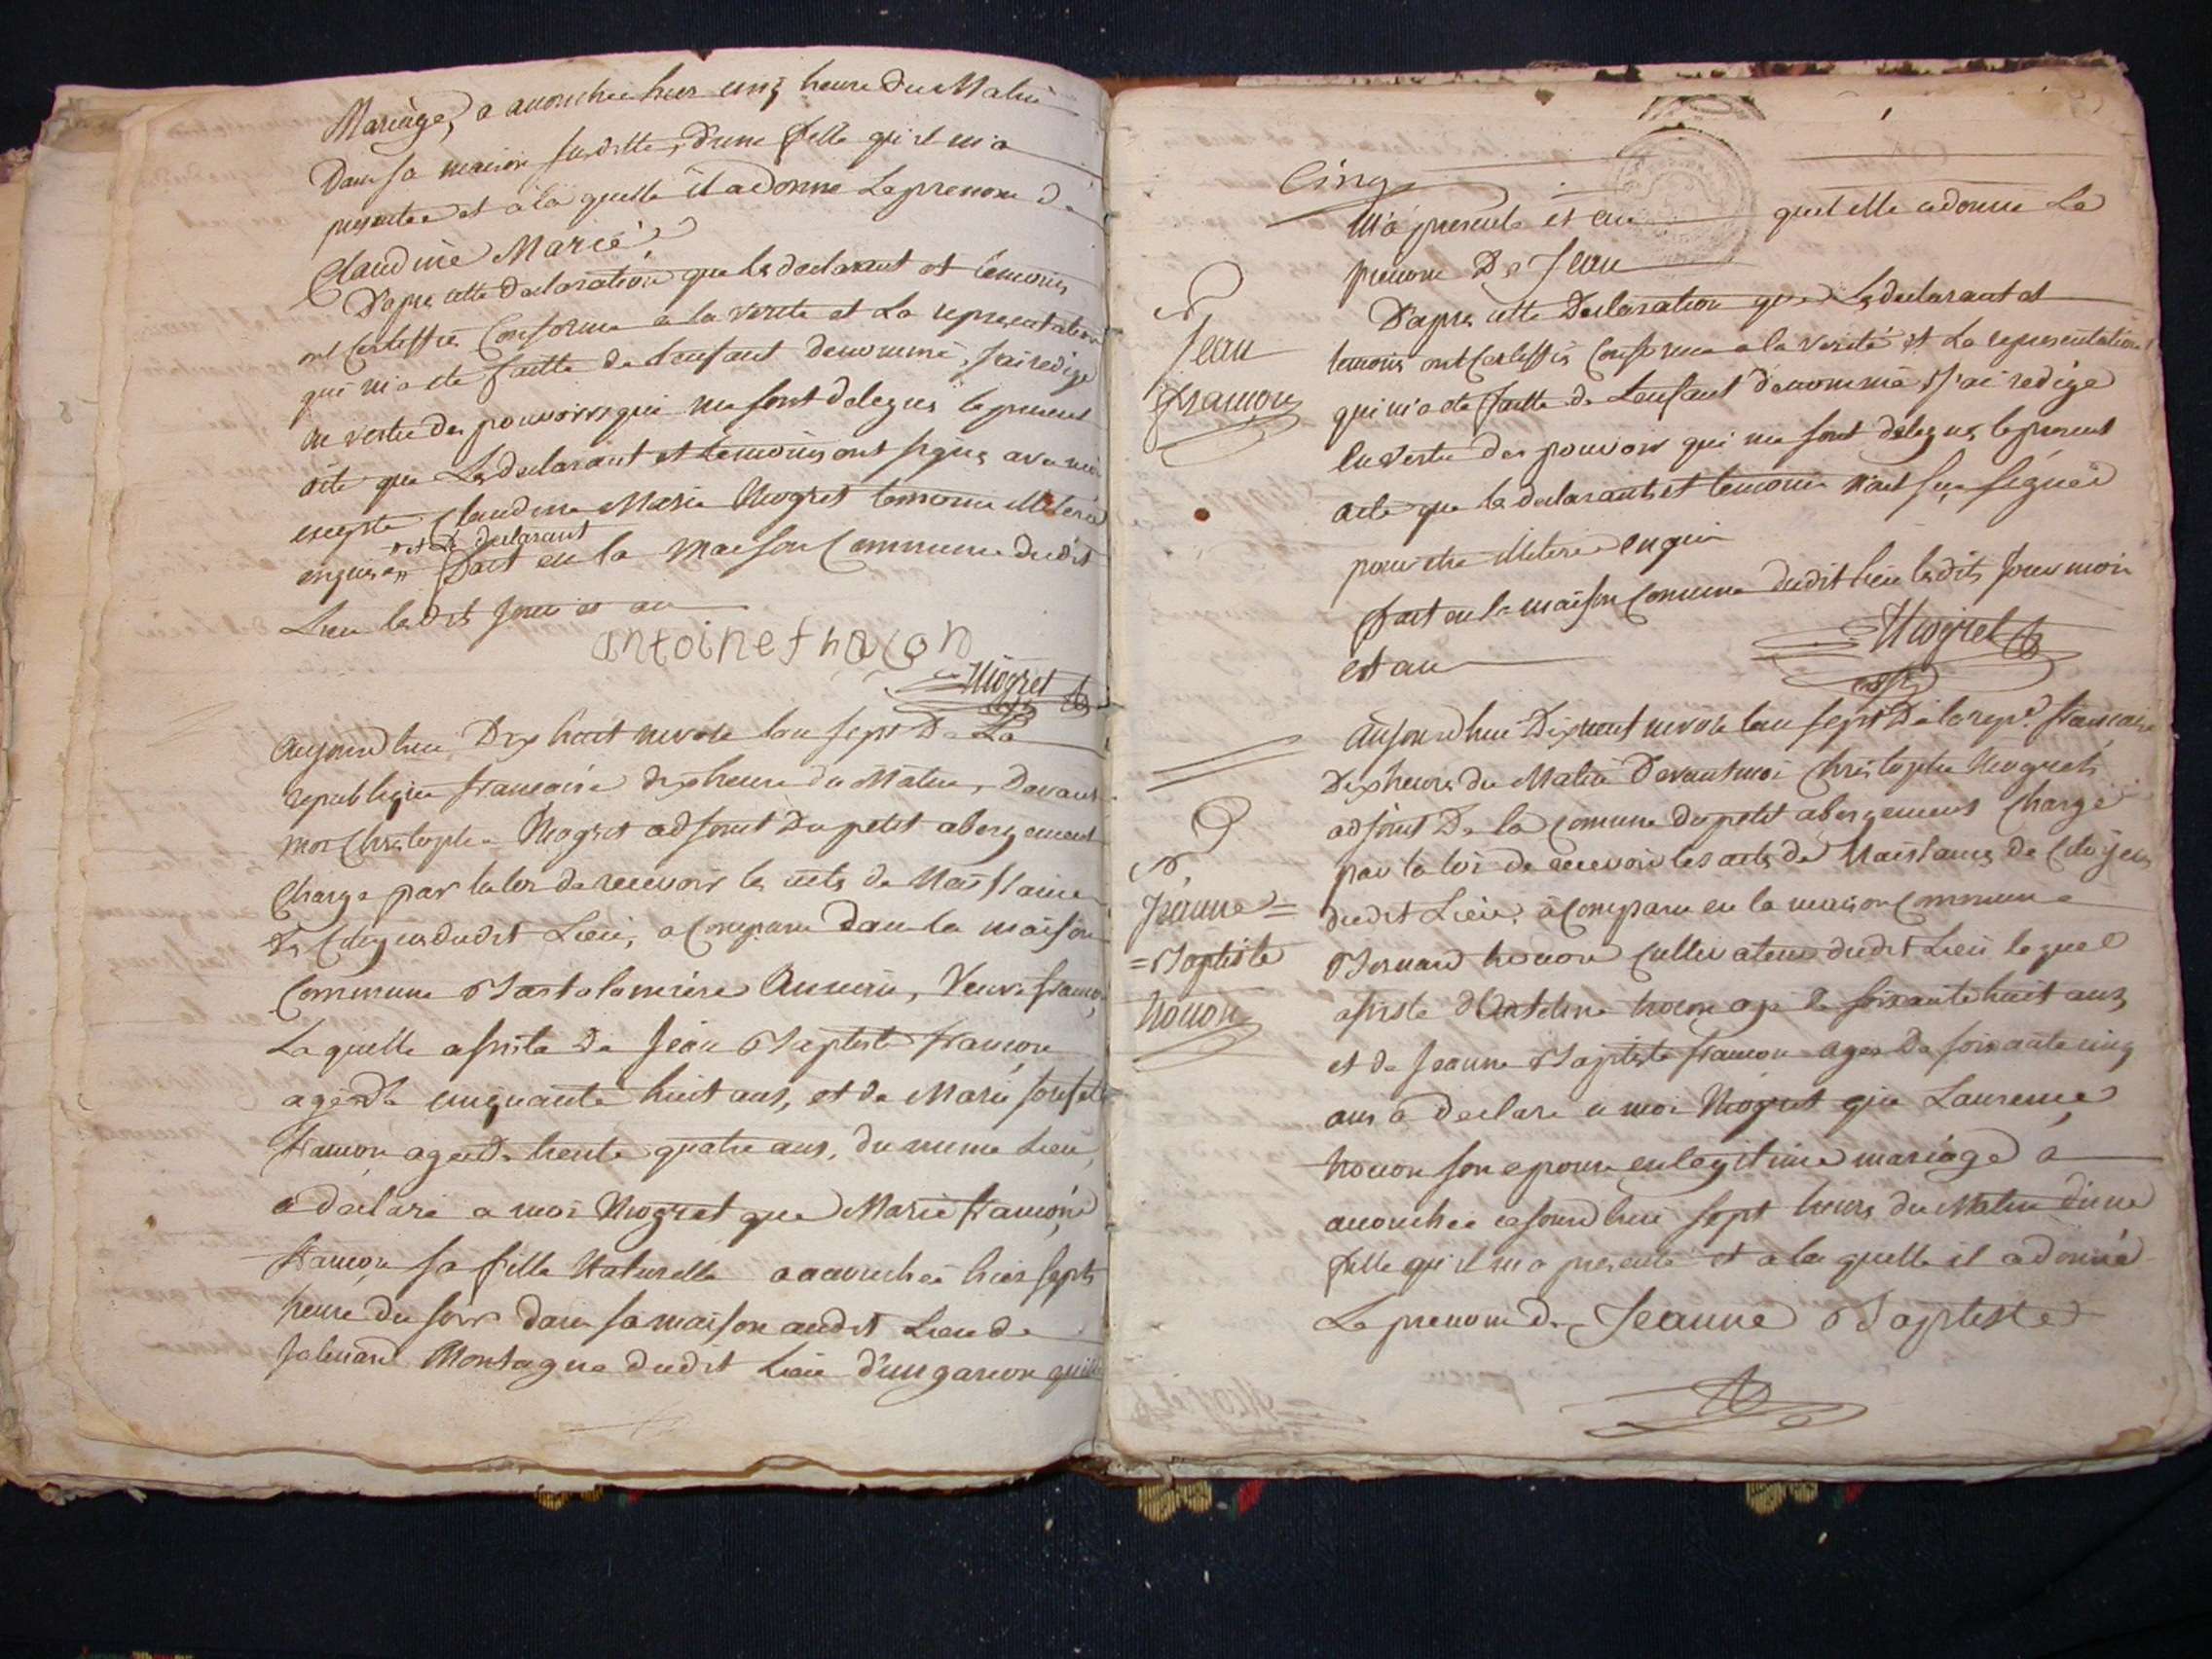 Mariage, a acouchée hier cinq heure du Matin
Dans sa maison susditte, d'une fille qu'il m'a
presentée et à la quelle il a donné Le prenom de
Claudine Marie
D'apres cette declaration que les declarant et temoins
ont certiffié Conforme a la verité et La representation
qui m'a ete faitte de L'enfant denommé, j'ai redigé
en vertu des pouvoirs qui me sont delegués le present
acte que Le declarant et temoins ont signés avec moi
excepté Claudine Marie Niogret temoin illeteré
enquis et Le declarant fait en la Maison Commune dudit
Lieu lesdit jour et an
antoine françon
Niogret
Aujourd'hui Dix huit nivose l'an sept De La
republique francoise dix heure du Matin, Devant
moi Christophe Niogret adjoint Du petit abergement
Chargé par la loi de recevoir les actes de Naissance
Des Citoyens dudit Lieu, a Comparu dans la maison
Commune Bartalomière, Veuve francon
La quelle assisté de Jean Baptiste francon
agé de cinquante huit ans, et de Marie Josephte
francon agée de trente quatre ans, du meme Lieu,
a declaré a moi Niogret que Marie francoise
francon sa fille Naturelle a acouchée hier sept
heure du soir dans sa maison audit Lieu de
Montagne dudit Lieu d'un garcon qu'elle
Cinq
m'a presenté et au quel elle a donné Le
prenom De Jean
N
Jean
francon
D'apres cette Declaration que Les declarant et
temoins ont certiffiés Conforme a la verité et La representation
qui m'a ete faitte de L'enfant denommé, j'ai redigé
en vertu des pouvoir qui me sont delegués le present
acte que le declarant et temoins n'ont sçu signer
pour etre illeteré enquis
fait en la maison Comune dudit lieu lesdits jour mois
et an
Niogret
adj
Aujourd'hui Dixneuf nivose l'an sept De la repe francoise
Dix heures du Matin Devant moi Christophe Niogret
adjoint De la Comune du petit abergement Chargé
par la loi de recevoir les actes de Naissances de Citoyens
dudit Lieu, a Comparu en la maison Commune
N
Jeanne=
=Baptiste
Nonon
Bernard Nonon Cultivateur dudit Lieu lequel
assisté d'Antelme Nonon agé de soixante huit ans
et de Jeanne Baptiste francon agée De soixante cinq
ans a declaré a moi Niogret que Laurence
Nonon son epouse en legitime mariage a
acouchée aujourd'hui sept heures du Matin d'une
fille qu'il m'a presenté et a la quelle il a donné
Le prenom de Jeanne Baptiste